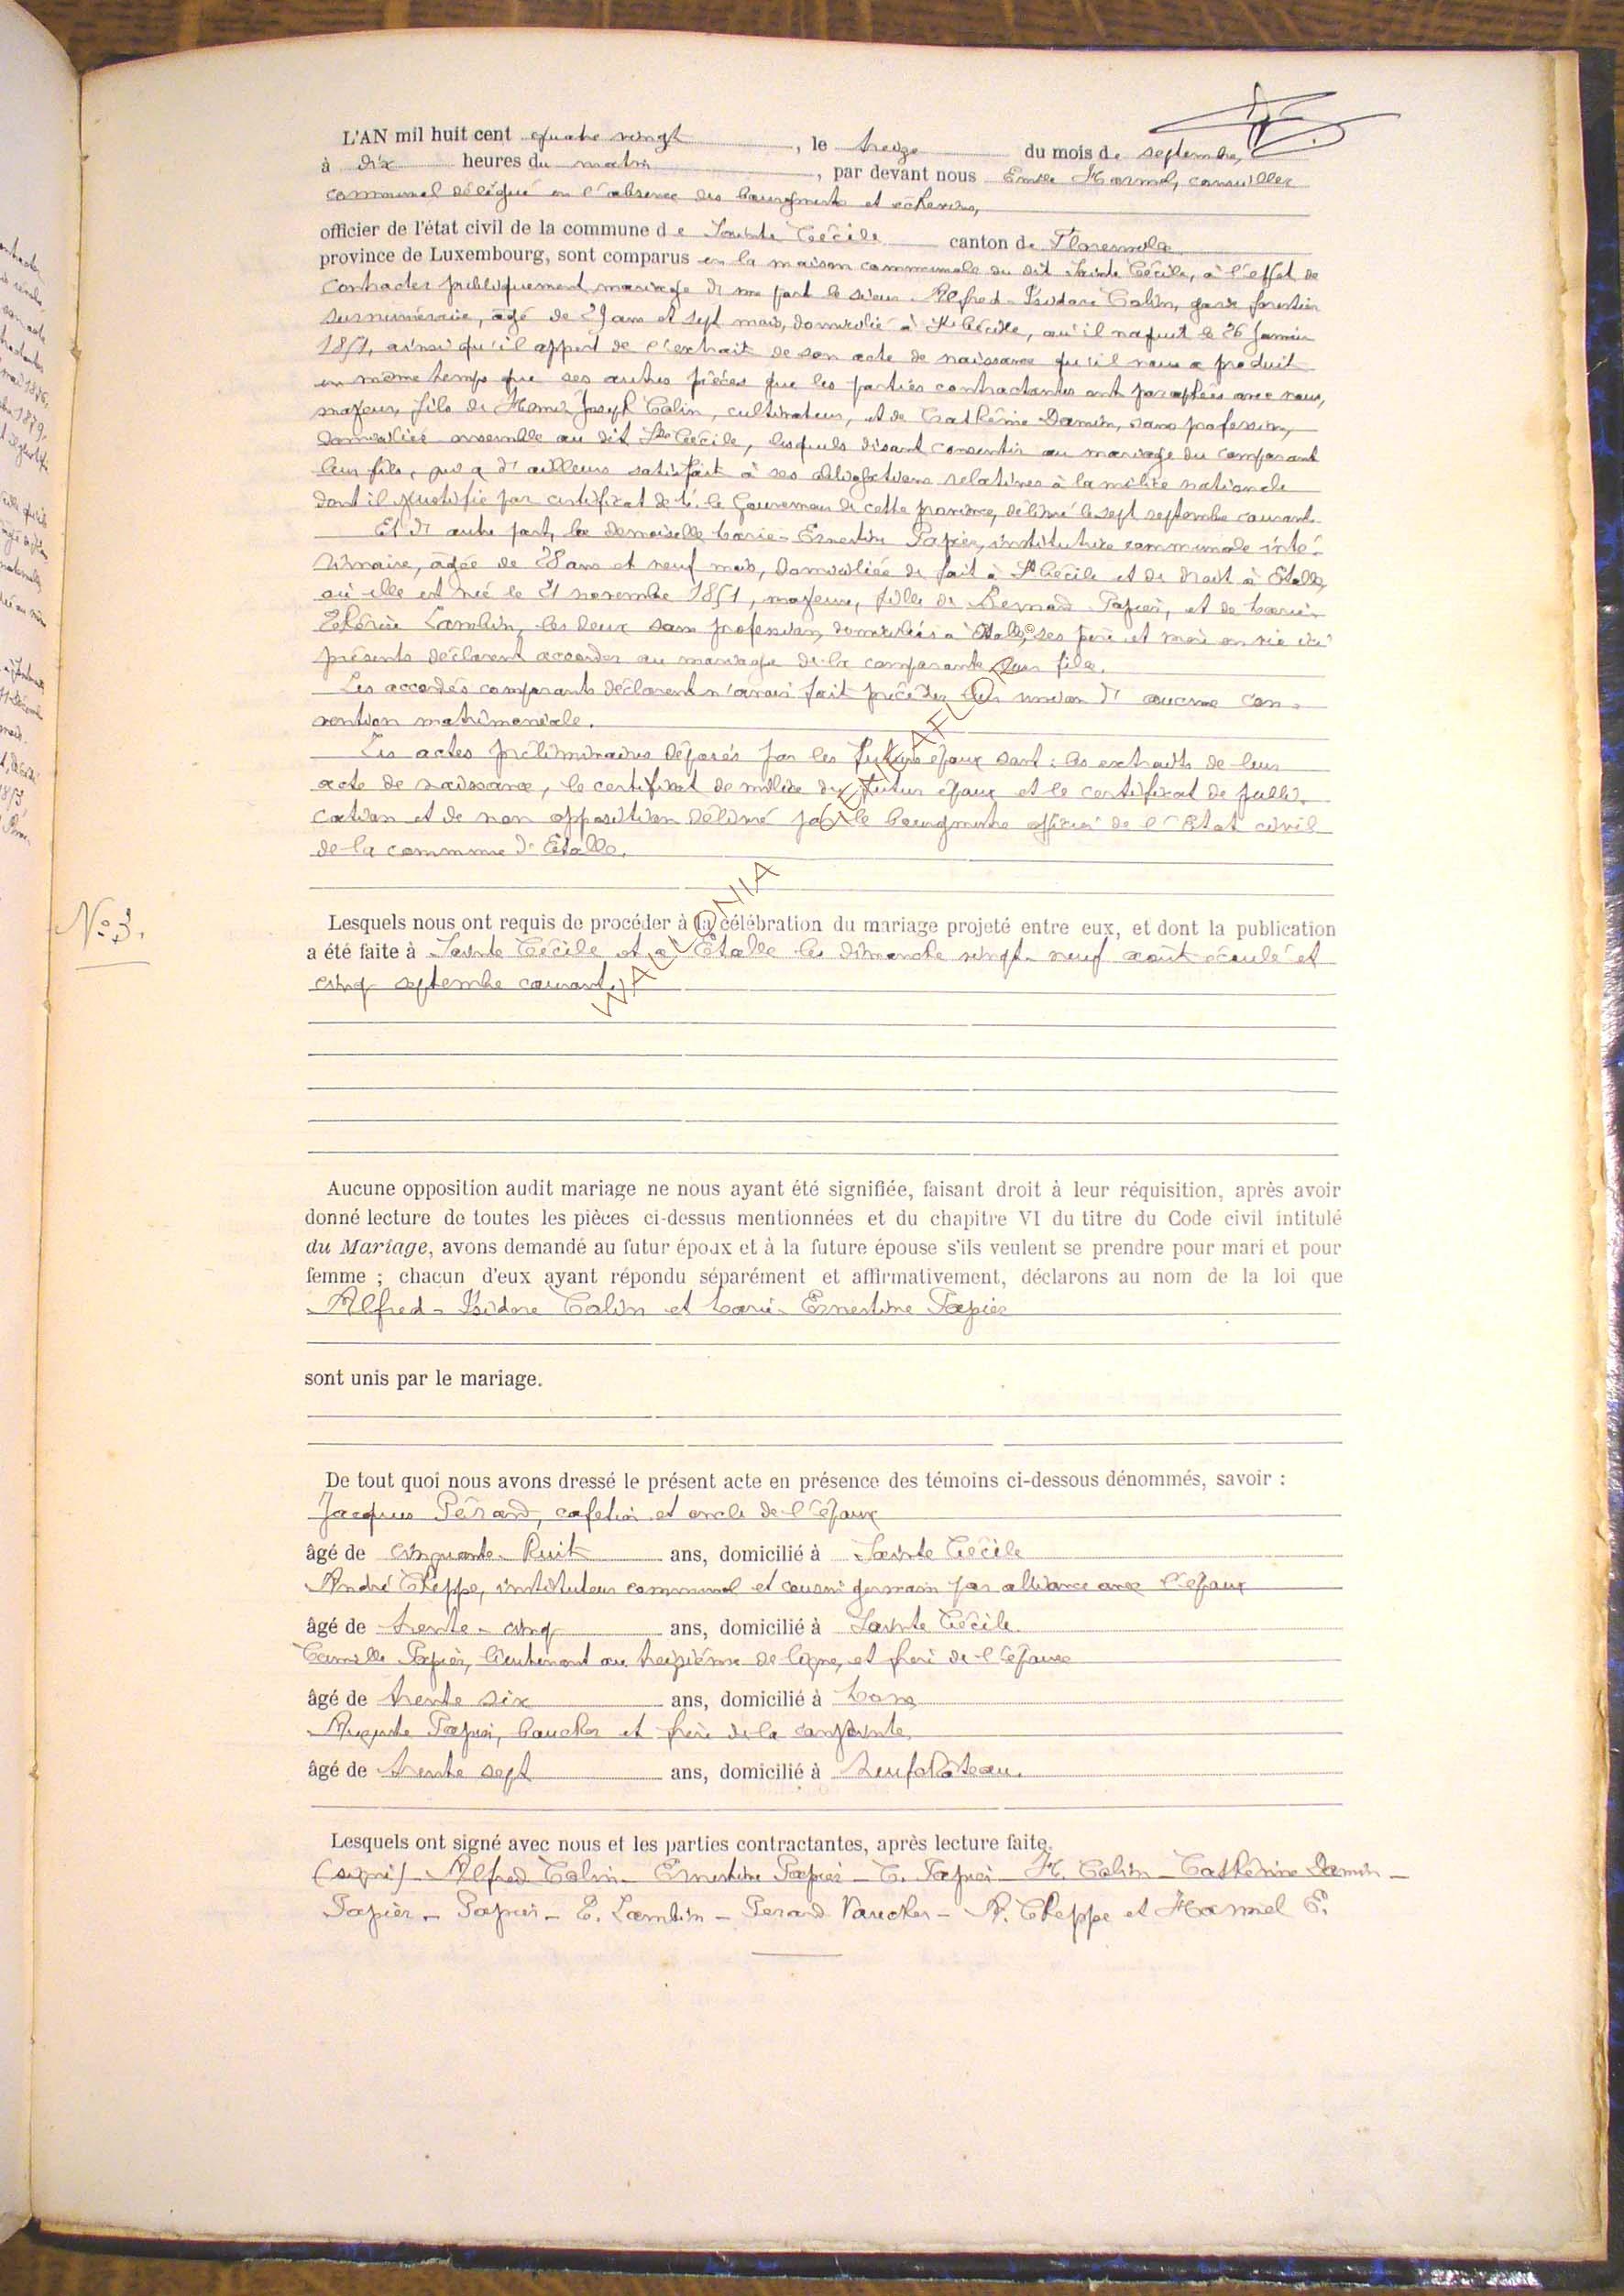 L'AN mil huit cent quatre vingt, le treize du mois de septembre,
à dix heures du matin, par devant nous Emile Hamel, conseiller
communal délégué en l'absence des bourgmestre et échevins,
officier de l'état civil de la commune de Sainte Cécile canton de Florenville
province de Luxembourg, sont comparus en la maison communale du dit Sainte Cécile, à l'effet de
contracter publiquement mariage de une part le sieur Alfred-Isidore Colin, garde forestier
surnuméraire, âgé de 29 ans et sept mois, domicilié à Ste Cécile, où il naquit le 26 Janvier
1851, ainsi qu'il appert de l'extrait de son acte de naissance qu'il nous a produit
en même temps que ses autres pièces que les parties contractantes ont paraphées avec nous,
majeur, fils de Henri Joseph Colin, cultivateur, et de Cathérine Damin, sans profession,
domiciliés ensemble au dit Ste Cécile, lesquels disant consentir au mariage du comparant
leur fils, qui a d'ailleurs satisfait à ses obligations relatives à la milice nationale
dont il justifie par certificat de le Gouverneur de cette province, délivré le sept septembre courant.
Et d'autre part, la demoiselle Marie-Ernestine Papier, institutrice communale inté-
rimaire, âgée de 28 ans et neuf mois, domiciliée de fait à Ste Cécile et de droit à Etalle,
où elle est née le 21 novembre 1851, majeure, fille de Bernard Papier, et de Marie-
Lambin, les deux sans profession, domiciliés à Etalle, ses père et mère en vie ici
présents déclarent accorder au mariage de la comparante leur fille.
Les accordés comparants déclarent n'avoir fait précéder leur union d'aucune con-
vention matrimoniale.
Les actes préliminaires déposés par les futurs époux sont : les extraits de leur
acte de naissance, le certificat de milice du futur époux et le certificat de publi-
cation et de non opposition délivré par le bourgmestre officier de l'Etat civil
de la commune d'Etalle.
No 3.
Lesquels nous ont requis de procéder à la célébration du mariage projeté entre eux, et dont la publication
a été faite à Sainte Cécile et à Etalle les dimanche vingt-neuf août écoulé et
cinq septembre courant.
Aucune opposition audit mariage ne nous ayant été signifiée, faisant droit à leur réquisition, après avoir
donné lecture de toutes les pièces ci-dessus mentionnées et du chapitre VI du titre du Code civil intitulé
du Mariage, avons demandé au futur époux et à la future épouse s'ils veulent se prendre pour mari et pour
femme ; chacun d'eux ayant répondu séparément et affirmativement, déclarons au nom de la loi que
Alfred-Isidore Colin et Marie-Ernestine Papier
sont unis par le mariage.
De tout quoi nous avons dressé le présent acte en présence des témoins ci-dessous dénommés, savoir :
Jacques Pérard, cafetier et oncle de l'époux
âgé de cinquante-huit ans, domicilié à Sainte Cécile
André Cheppe, instituteur communal et cousin germain par alliance avec l'époux
âgé de trente-cinq ans, domicilié à Sainte Cécile.
Camille Papier, lieutenant au treizième de ligne, et frère de l'épouse
âgé de trente six ans, domicilié à Mons
Auguste Papier, et frère de la conjointe
âgé de trente sept ans, domicilié à Neufchâteau.
Lesquels ont signé avec nous et les parties contractantes, après lecture faite.
(signé) Alfred Colin - Ernestine Papier - C. Papier - H. Colin - Cathérine Damin -
Papier - Papier - E. Lambin - Perard - A. Cheppe et Hamel E.
WALLONIA